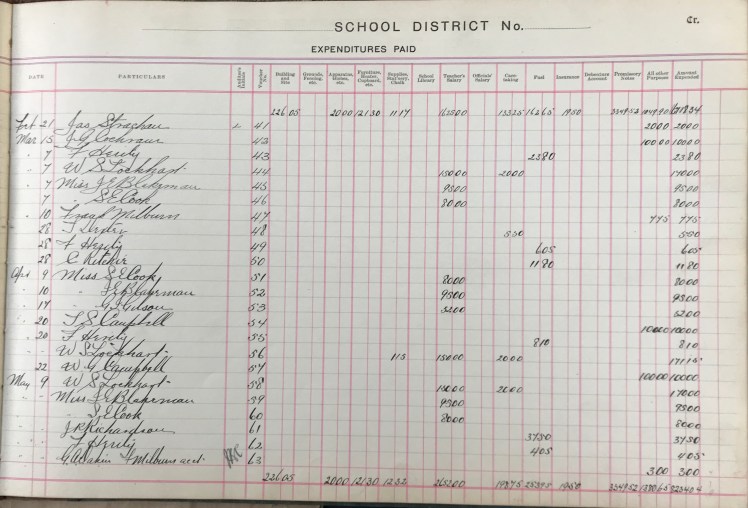 SCHOOL DISTRICT No. Cr.
EXPENDITURES PAID
DATE PARTICULARS Voucher No. Building and Site Grounds, Fencing, etc. Apparatus, Globes, etc. Furniture, Heater, Cupboard, etc. Supplies, Stat'nery, Chalk School Library Teacher's Salary Officials' Salary Care-taking Fuel Insurance Debenture Account Promissory Notes All other Purposes Amount Expended
226 05 20 00 121 30 11 17 1625 00 133 25 162 65 19 50 3549 52
Feb 21 Jas Strachan 41 20 00 20 00
Mar 15 J G Cochrane 42 100 00 100 00
" 7 F Henly 43 23 80 23 80
" 7 W S Lockhart 44 150 00 20 00 170 00
" 7 Miss J E Blakman 45 95 00 95 00
" 7 " S E Cook 46 80 00 80 00
" 10 Frank Milburn 47 7 75 7 75
" 28 48 5 50 5 50
" 28 F Henly 49 6 05 6 05
" 28 C Ritchie 50 11 80 11 80
Apr 9 Miss S E Cook 51 80 00 80 00
" 10 " J E Blakman 52 95 00 95 00
" 17 " G Gilson 53 52 00 52 00
" 20 T S Campbell 54 100 00 100 00
" 20 F Henly 55 8 10 8 10
W S Lockhart 56 1 15 150 00 20 00 171 15
" 22 W G Campbell 57 100 00 100 00
May 9 W S Lockhart 58 150 00 20 00 170 00
Miss J E Blakman 59 95 00 95 00
" S E Cook 60 80 00 80 00
J R Richardson 61 37 50 37 50
" F Henly 62 4 05 4 05
Milburn acct 63 3 00 3 00
226 05 20 00 121 30 12 32 2652 00 198 75 19 50 3549 52